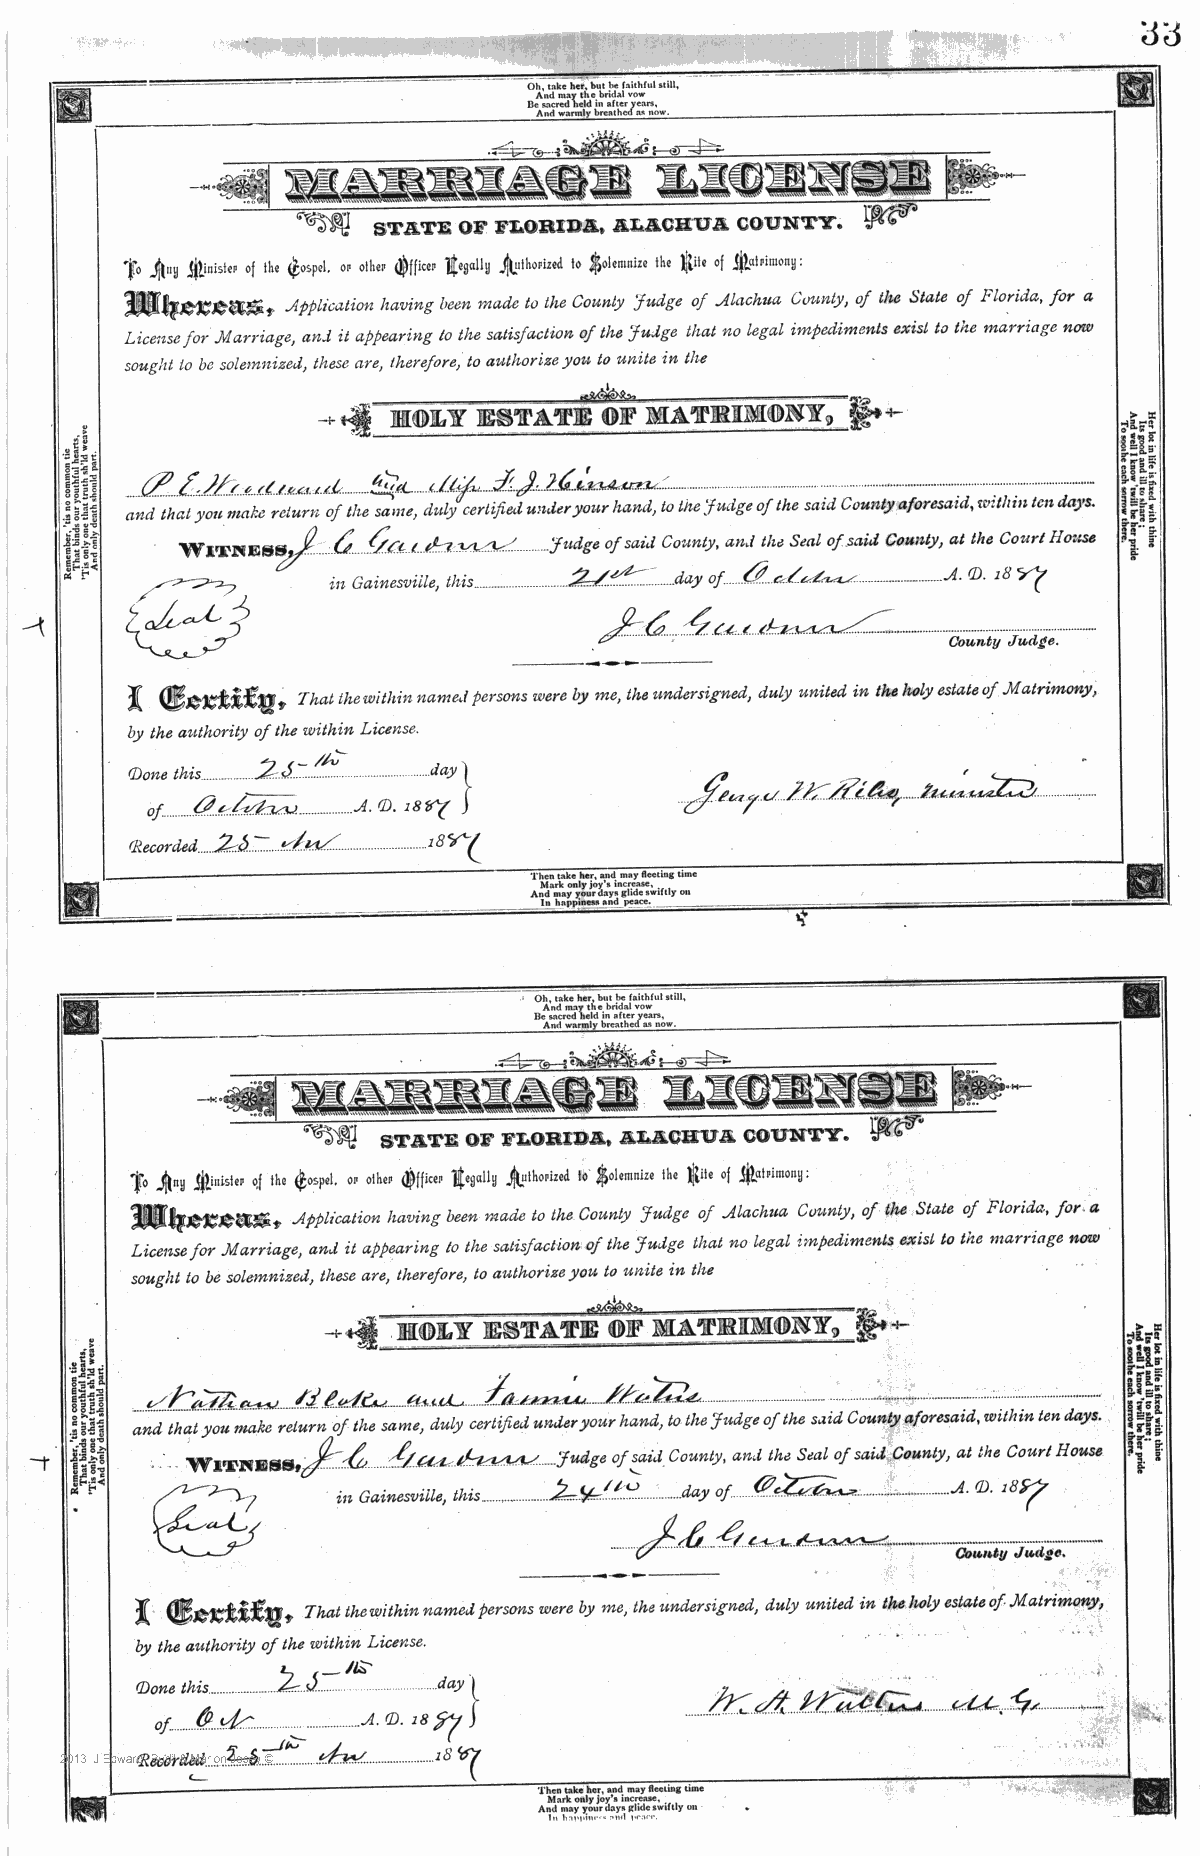 33
Oh, take her, but be faithful still,
And may the bridal vow
Be sacred held in after years,
And warmly breathed as now.
MARRIAGE LICENSE
STATE OF FLORIDA, ALACHUA COUNTY.
To Any Minister of the Gospel, or other Officer Legally Authorized to Solemnize the Rite of Matrimony:
Whereas, Application having been made to the County Judge of Alachua County, of the State of Florida, for a
License for Marriage, and it appearing to the satisfaction of the Judge that no legal impediments exist to the marriage now
sought to be solemnized, these are, therefore, to authorize you to unite in the
HOLY ESTATE OF MATRIMONY,
P E. Woodward and Miss F. J. Hinson
and that you make return of the same, duly certified under your hand, to the Judge of the said County aforesaid, within ten days.
WITNESS, J C Gardner Judge of said County, and the Seal of said County, at the Court House
in Gainesville, this 21st day of October A. D. 1887
Seal
J C Gardner
County Judge.
I Certify, That the within named persons were by me, the undersigned, duly united in the holy estate of Matrimony,
by the authority of the within License.
Done this 25th day
of October A. D. 1887
George W. Riles, minister
Recorded 25 Nov 1887
Then take her, and may fleeting time
Mark only joy's increase,
And may your days glide swiftly on
In happiness and peace.
Remember, 'tis no common tie
That binds our youthful hearts,
'Tis only one that truth sh'ld weave
And only death should part.
Her lot in life is fixed with thine
Its good and ill to share;
And well I know 'twill be her pride
To soothe each sorrow there.
Oh, take her, but be faithful still,
And may the bridal vow
Be sacred held in after years,
And warmly breathed as now.
MARRIAGE LICENSE
STATE OF FLORIDA, ALACHUA COUNTY.
To Any Minister of the Gospel, or other Officer Legally Authorized to Solemnize the Rite of Matrimony:
Whereas, Application having been made to the County Judge of Alachua County, of the State of Florida, for a
License for Marriage, and it appearing to the satisfaction of the Judge that no legal impediments exist to the marriage now
sought to be solemnized, these are, therefore, to authorize you to unite in the
HOLY ESTATE OF MATRIMONY,
Nathan Blake and Fannie Waters
and that you make return of the same, duly certified under your hand, to the Judge of the said County aforesaid, within ten days.
WITNESS, J C Gardner Judge of said County, and the Seal of said County, at the Court House
in Gainesville, this 24th day of October A. D. 1887
Seal
J C Gardner
County Judge.
I Certify, That the within named persons were by me, the undersigned, duly united in the holy estate of Matrimony,
by the authority of the within License.
Done this 25th day
of Oct A. D. 1887
W. A. Walters M. G.
Recorded 25th Nov 1887
2013 J Edward
Then take her, and may fleeting time
Mark only joy's increase,
And may your days glide swiftly on
In happiness and peace.
Remember, 'tis no common tie
That binds our youthful hearts,
'Tis only one that truth sh'ld weave
And only death should part.
Her lot in life is fixed with thine
Its good and ill to share;
And well I know 'twill be her pride
To soothe each sorrow there.